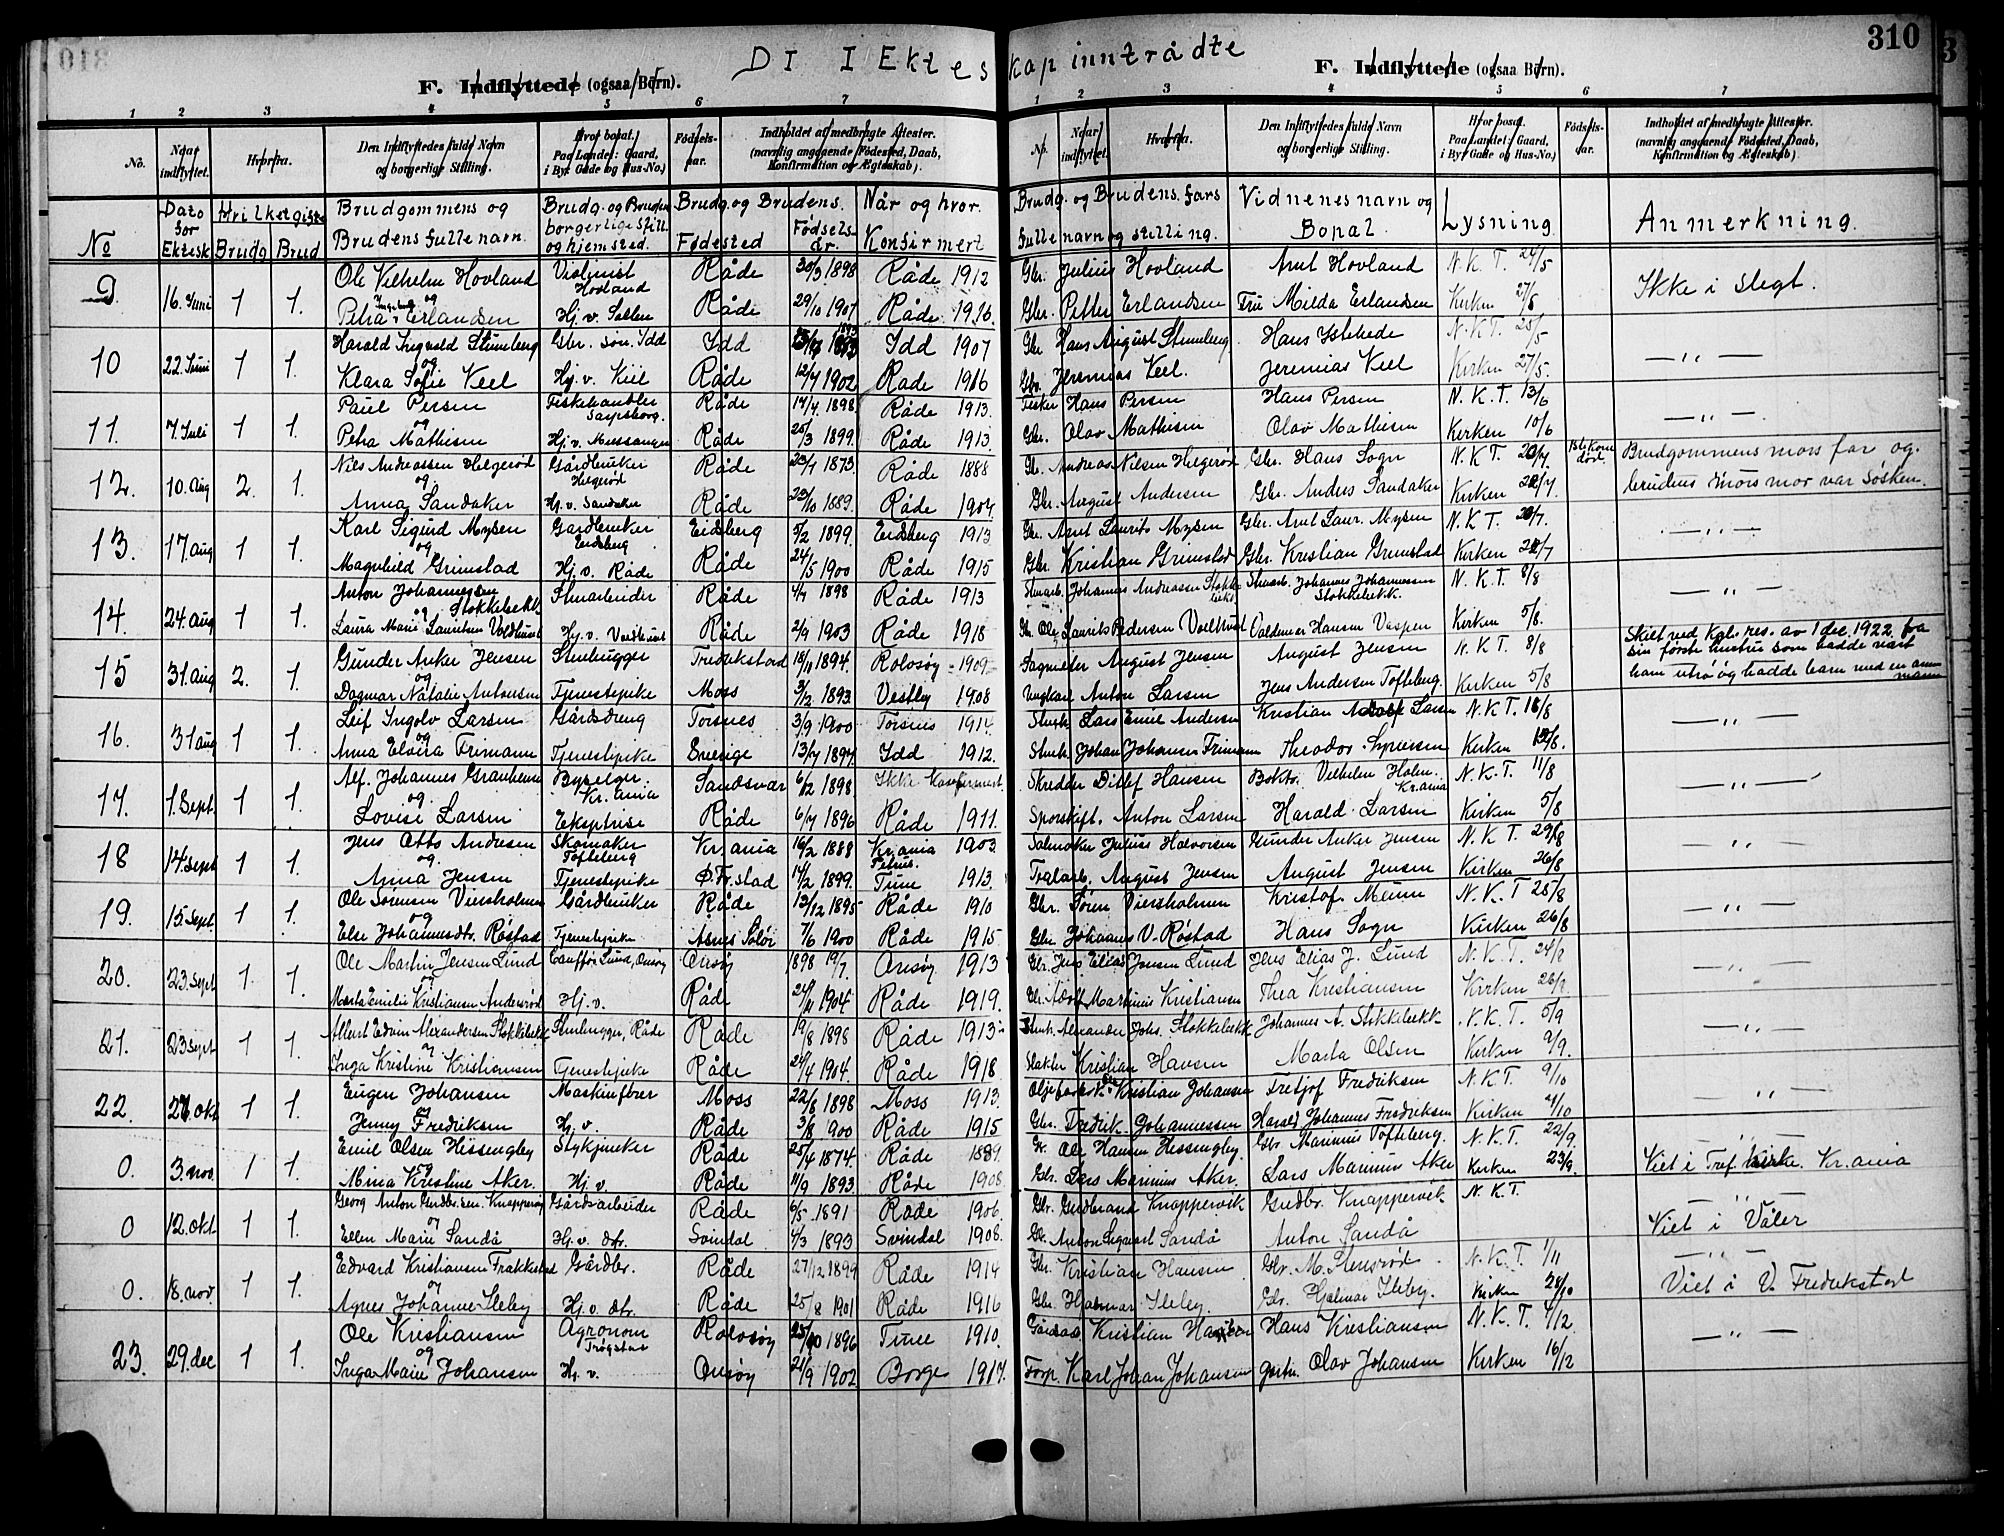 310
DI I Ektes kap inntrådte
F. Indflyttede (ogsaa Børn).
1 2 3 4 5 6 7
No. Naar indflyttet. Hvorfra. Den Indflyttedes fulde Navn og borgerlige Stilling. Hvor bosat. Paa Landet: Gaard, i By: Gade og Hus-No.) Fødsels-aar. Indholdet af medbragte Attester. (navnlig angaaende Fødested, Daab, Konfirmation og Ægteskab).
No Dato for Ektesk Hvilket giste Brudg Brud Brudgommens og Brudens fulle navn. Brudg. og Bruden borgerlige still. og hjemsted. Brudg. og Brudens. Fødested Fødsels-år. Når og hvor. Konfirmert
9. 16. Juni 1 1. Ole Vilhelm Hovland Violinist Hovland Råde 30/3 1898 Råde 1912
og
Petra Ingeborg Erlandsen Hj. v. Råde 29/10 1907 Råde 1916.
10 22. Juni 1 1. Harald Ingvald Stumberg Gbr. søn. Idd Idd Idd 1907
og
Klara Sofie Keel Hj. v. Kiil Råde 12/7 1902 Råde 1916
11. 7. Juli 1 1. Paul Persen Fiskehandler Sarpsborg. Råde 17/4. 1898. Råde 1913.
og
Petra Mathisen Hj. v. Råde 25/3 1899. Råde 1913.
12. 10. Aug 2. 1. Nils Andreassen Helgerød Gårdbruker Helgerød Råde 23/1 1873. Råde 1888
og
Anna Sandaker Hj. v. Sandaker Råde 23/10 1889. Råde 1904
13. 17. Aug 1 1. Karl Sigurd Mysen Gardbruker Eidsberg Eidsberg 5/2 1899. Eidsberg 1913
og
Magnhild Grimstad Hj. v. Råde Råde 24/5 1900 Råde 1915
14. 24. Aug 1 1. Anton Johannessen Stokkebekk Stenarbeider Råde 4/7 1898 Råde 1913
og
Laura Marie Lauritsen Voldkvist Hj. v. Voldkvist Råde 2/9 1903 Råde 1918
15 31. Aug 2. 1. Gunder Anker Jensen Stenhugger Fredrikstad 18/11 1894. Rolvsøy 1909
og
Dagmar Natalie Antonsen Tjenestepike Moss 3/2. 1893. Vestby 1908
16. 31 aug 1 1. Leif Ingolv Larsen Gårdsdreng Torsnes 3/9 1900 Torsnes 1914.
og
Anna Elvira Frimann Tjenestepike Sverige 13/7 1894. Idd 1912.
17. 1. Sept. 1 1. Alf. Johannes Granheim Kr.ania Sandsvær 6/12 1898 Ikke konfirmert
og
Lovise Larsen Ekspitrise Råde 6/7 1896 Råde 1911.
18 14. sept 1 1. Jens Otto Andresen Skomaker Tofteberg Kr.ania 16/2 1888 Kr.ania Petrus. 1903
og
Anna Jensen Tjenestepike Ø.Fr.stad 14/2 1899. Tune 1913.
19. 15. Sept. 1 1. Ole Sørensen Viersholmen Gårdbruker Råde 13/12 1895 Råde 1910
og
Else Johannesdtr. Røstad Tjenestepike Asnes Solør 7/6 1900 Råde 1915.
20. 23. Sept 1. 1. Ole Martin Jensen Lund Lund, Onsøy Onsøy 1898 19/7. Onsøy 1913
og
Marta Emilie Kristiansen Andersrød Hj. v. Råde 24/11 1904. Råde 1919.
21. 23. sept 1 1. Albert Edvin Alexandersen Stokkebekk Stenhugger, Råde Råde 19/8 1898 Råde 1913
og
Inga Kristine Kristiansen Tjenestepike Råde 24/4 1904. Råde 1918
22. Okt 1 1. Eugen Johansen Maskinfører Moss 22/8 1898 Moss 1913.
og
Jenny Fredriksen Hj. v. Råde 3/8 1900 Råde 1915
0. 3. nov. 1 1. Emil Olsen Hissengby Stykjunker Råde 25/4 1874. Råde 1889.
og
Mina Kristine Aker. Hj. v. Råde 11/9 1893. Råde 1908.
0 12. okt 1 1. Georg Anton Gudbr.sen. Knappervik Gårdsarbeider Råde 6/5 1891 Råde 1906.
og
Ellen Marie Sandå Hj. v. dtr. Svindal 6/3 1893 Svindal 1908.
0. 18. nov. 1 1. Edvard Kristiansen Frakkestad Gårdbr. Råde 27/12 1899 Råde 1914
og
Agnes Johanne Ileby Hj. v. dtr. Råde 25/8 1901 Råde 1916
23. 29. dec 1 1. Ole Kristiansen Agronom Trøgstad Rolvsøy 1896 Tune 1910.
og
Inga Marie Johansen Hj. v. Onsøy 24/9 1902 Borge 1917.
F. Indflyttede (ogsaa Børn).
1 2 3 4 5 6 7
No. Naar indflyttet. Hvorfra. Den Indflyttedes fulde Navn og borgerlige Stilling. Hvor bosat. Paa Landet: Gaard, i By: Gade og Hus-No.) Fødsels-aar. Indholdet af medbragte Attester. (navnlig angaaende Fødested, Daab, Konfirmation og Ægteskab).
Brudg. og Brudens. fars fulle navn og stilling. Vidnenes navn og Bopæl. Lysning Anmerkning.
Gbr. Julius Hovland Arnt Hovland N. K. T. 24/5 Ikke i slegt.
Gbr. Petter Erlandsen Fru Milda Erlandsen Kirken 27/8
Gbr Hans August Stumberg Hans N. K. T. 25/5 — " —
Gbr. Jeremias Keel. Jeremias Keel Kirken 27/5.
Fisker Hans Persen Hans Persen N. K. T. 13/6 — " —
Gbr. Olav Mathisen Olav Mathisen Kirken 10/6
Gbr. Andreas Nilsen Helgerød Gbr. Hans Sogn N. K. T. Brudgommens mors far og
Gbr August Andersen Gbr. Anders Sandaker Kirken brudens mors mor var søsken.
Gbr. Arnt Laurits Mysen Gbr. Arnt Laur. Mysen N. K. T. — " —
Gbr. Kristian Grimstad Gbr. Kristian Grimstad Kirken
Stenarb. Johannes Andreassen Stokkebekk Stenarb. Johannes Johannessen Stokkebekk. N. K. T. 8/8 — " —
Gbr. Ole Laurits Pedersen Voldkvist Valdemar Hansen Vaspen Kirken 5/8.
Sagmester August Jensen August Jensen N. K. T. 8/8 Skilt ved Kgl. res. av 1 dec. 1922 fra
sin første hustru som hadde vært
Ungkarl Anton Larsen Jens Andersen Tofteberg. Kirken 5/8 ham utro og hadde barn med en ann mann
Stenh. Lars Emil Andersen Kristian Adolf Larsen N. K. T. — " —
Stenh. Johan Johansen Frimann Theodor Syversen Kirken
Skredder Ditlef Hansen Vilhelm Holm. Kr.ania N. K. T. 11/8 — " —
Sporskift. Anton Larsen Harald Larsen Kirken 5/8
Salmaker Julius Halvorsen Gunder Anker Jensen N. K. T. 29/8 — " —
August Jensen August Jensen Kirken 26/8
Gbr. Søren Viersholmen Kristof. Meum N. K. T 25/8 — " —
Gbr Johannes V. Røstad Hans Sogn Kirken 26/8
Gbr. Jens Elias Jensen Lund Jens Elias J. Lund N. K. T. 24/8 — " —
Gbr. Adolf Martinius Kristiansen Thea Kristiansen Kirken 26/8.
Stenh. Alexander Johs. Stokkebekk Johannes A. Stokkebekk N. K. T. 5/9 — " —
Slakter Kristian Hansen Marta Olsen Kirken 9/9.
Kristian Johansen Fretjof Fredriksen N. K. T. 9/10 "
Gbr. Fredrik Johannessen Harald Johannes Fredriksen Kirken 7/10
Gbr. Ole Hansen Hissengby. Gbr. Marinius Tofteberg. N. K. T. 22/9. — " —
Gbr. Lars Marinius Aker. Lars Marinius Aker Kirken 23/9 Viet i Tref. kirke. Kr.ania
Gbr. Gudbrand Knappervik Gudbr. Knappervik N. K. T. — " —
Gbr. Anton Sigvart Sandå Anton Sandå Viet i Våler
Gbr. Kristian Hansen Gbr. M. Stensrød N. K. T. 1/11 — " —
Gbr. Hjalmar Ileby. Gbr. Hjalmar Ileby. Kirken 28/10 Viet i V. Fredrikstad
Kristian Hansen Hans Kristiansen N. K. T. 4/12 — " —
Forp. Karl Johan Johansen Olav Johansen Kirken 16/12